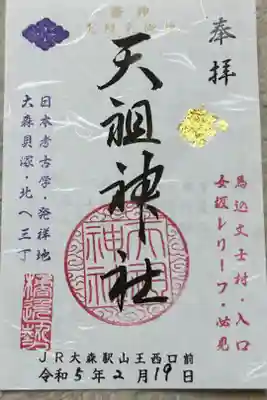 奉拝
馬込文士村・入口
女坂レリーフ・必見
天祖神社
日本考古学・発祥地
大森貝塚・北へ三丁
JR大森駅山王西口前
令和5年2月19日